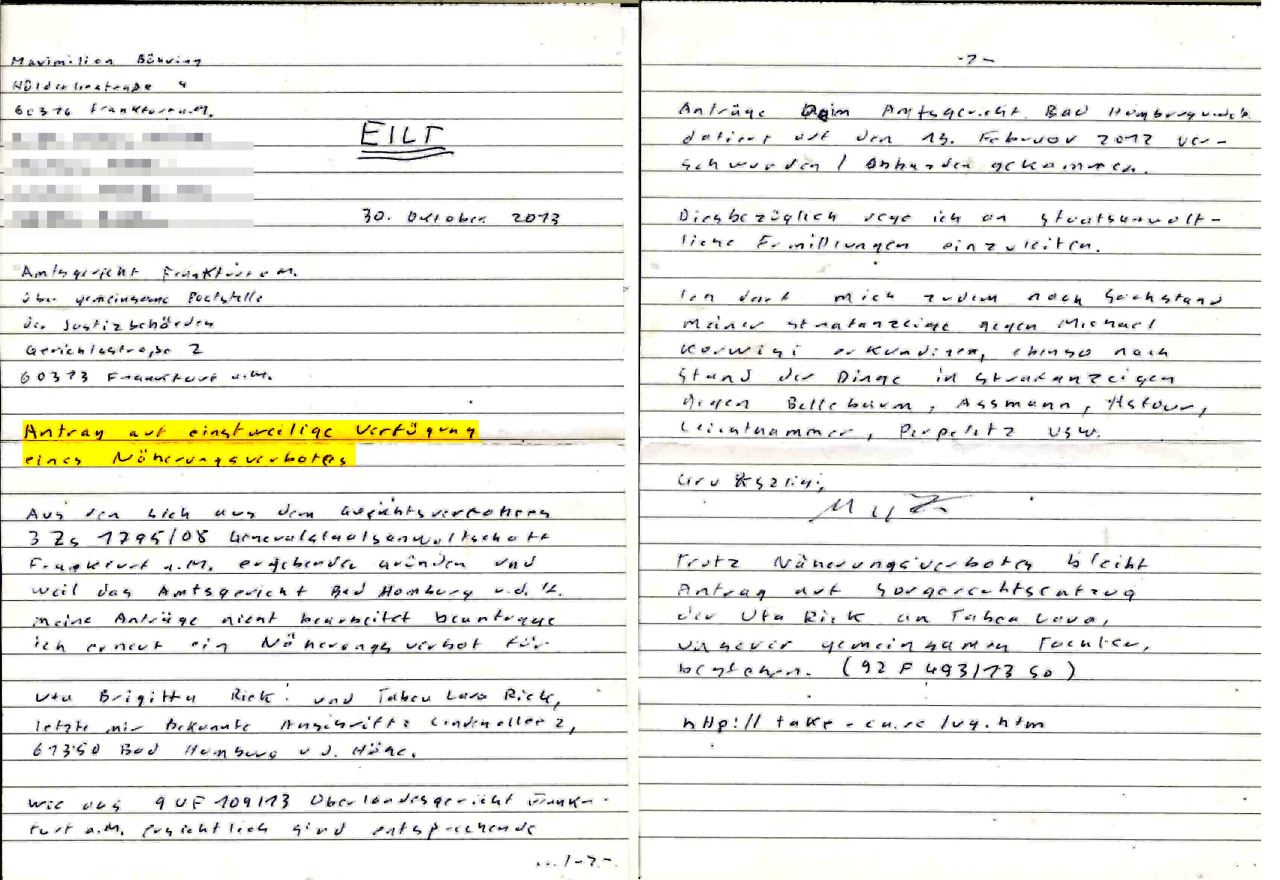 Maximilian Bähring
Hölderlinstraße 4
60316 Frankfurt a.M.
EILT
30. Oktober 2013
Amtsgericht Frankfurt a.M.
über gemeinsame Poststelle
der Justizbehörden
Gerichtsstraße 2
60313 Frankfurt a.M.
Antrag auf einstweilige Verfügung
eines Näherungsverbotes
Aus den sich aus dem Gerichtsverfahren
3 Zs 1795/08 Generalstaatsanwaltschaft
Frankfurt a.M. ergebenden Gründen und
weil das Amtsgericht Bad Homburg v.d.H.
meine Anträge nicht bearbeitet beantrage
ich erneut ein Näherungsverbot für
Uta Brigitta Riek und Tabea Lara Riek,
letzte mir bekannte Anschrift: Lindenallee 2,
61350 Bad Homburg v.d. Höhe.
Wie aus 9 UF 109/13 Oberlandesgericht Frank-
furt a.M. ersichtlich sind entsprechende
... /-2-
-2-
Anträge beim Amtsgericht Bad Homburg v.d.H.
datiert auf den 13. Februar 2012 ver-
schwunden / abhanden gekommen.
Diesbezüglich rege ich an staatsanwalt-
liche Ermittlungen einzuleiten.
Ich darf mich zudem nach Sachstand
meiner Strafanzeige gegen Michael
Korwisi erkundigen, ebenso nach
Stand der Dinge in Strafanzeigen
gegen Bellebaum, Assmann,
Leichthammer, Perpelitz usw.
Trotz Näherungsverbotes bleibt
Antrag auf Sorgerechtsentzug
der Uta Riek an Tabea Lara,
unserer gemeinsamen Tochter,
bestehen. (92 F 493/13 SO)
http:// take-ca.re /vg.htm